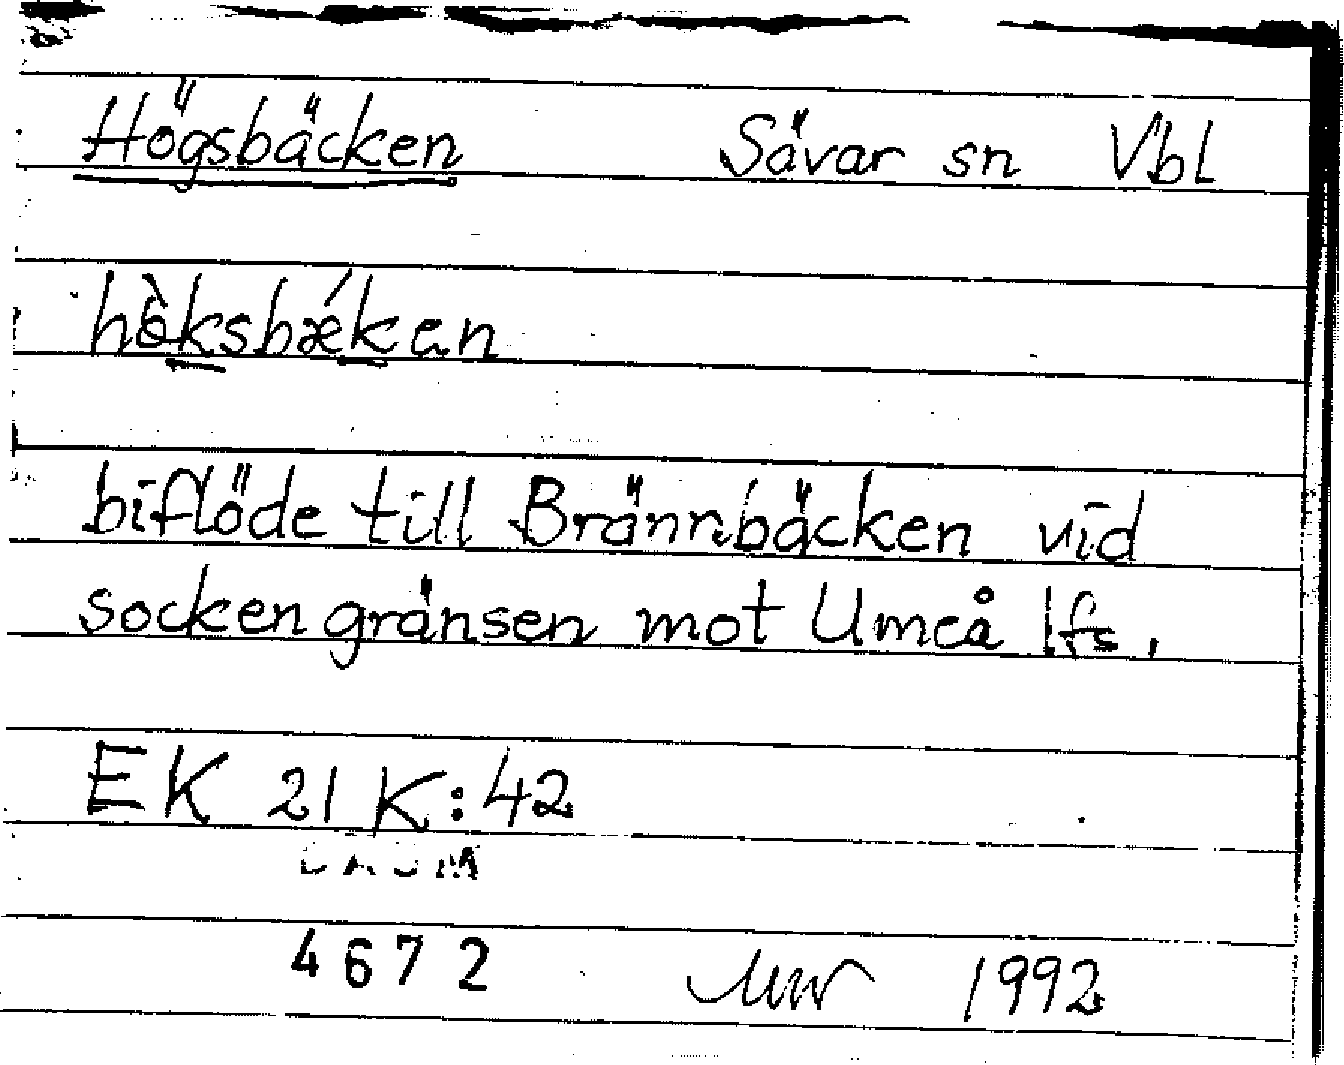 Högsbäcken Sävar sn Vbl
hö̀ksbǽkan
biflöde till Brännbäcken vid
sockengränsen mot Umeå lfs.
EK 21 K:42
4672 1992